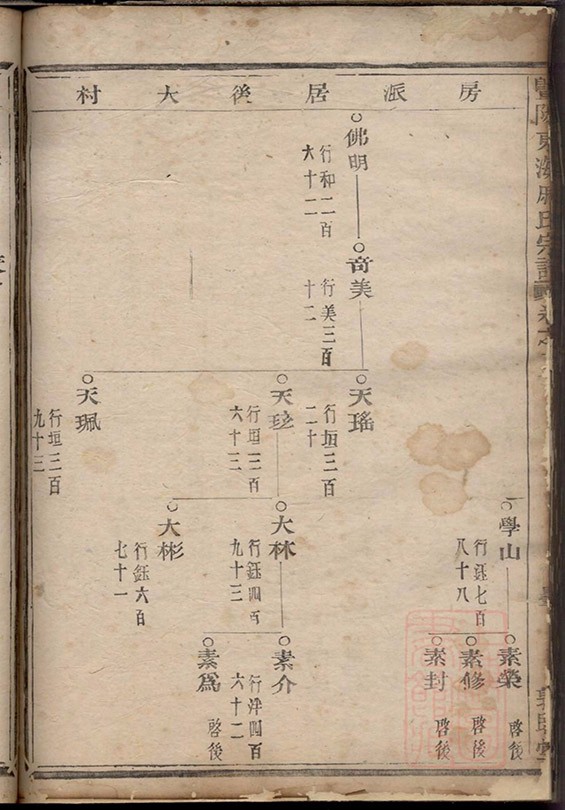 房派居後大村
佛明
行和二百
六十二
奇美
行美三百
十二
天瑤
行垣三百
二十
天珽
行垣三百
六十三
天珮
行垣三百
九十三
學山
行鈺七百
八十八
大林
行鈺四百
九十三
大彬
行鈺六百
七十一
素榮
啓後
素修
啓後
素封
啓後
素介
行泮四百
六十二
素爲
啓後
暨陽東海
氏宗譜
卷之